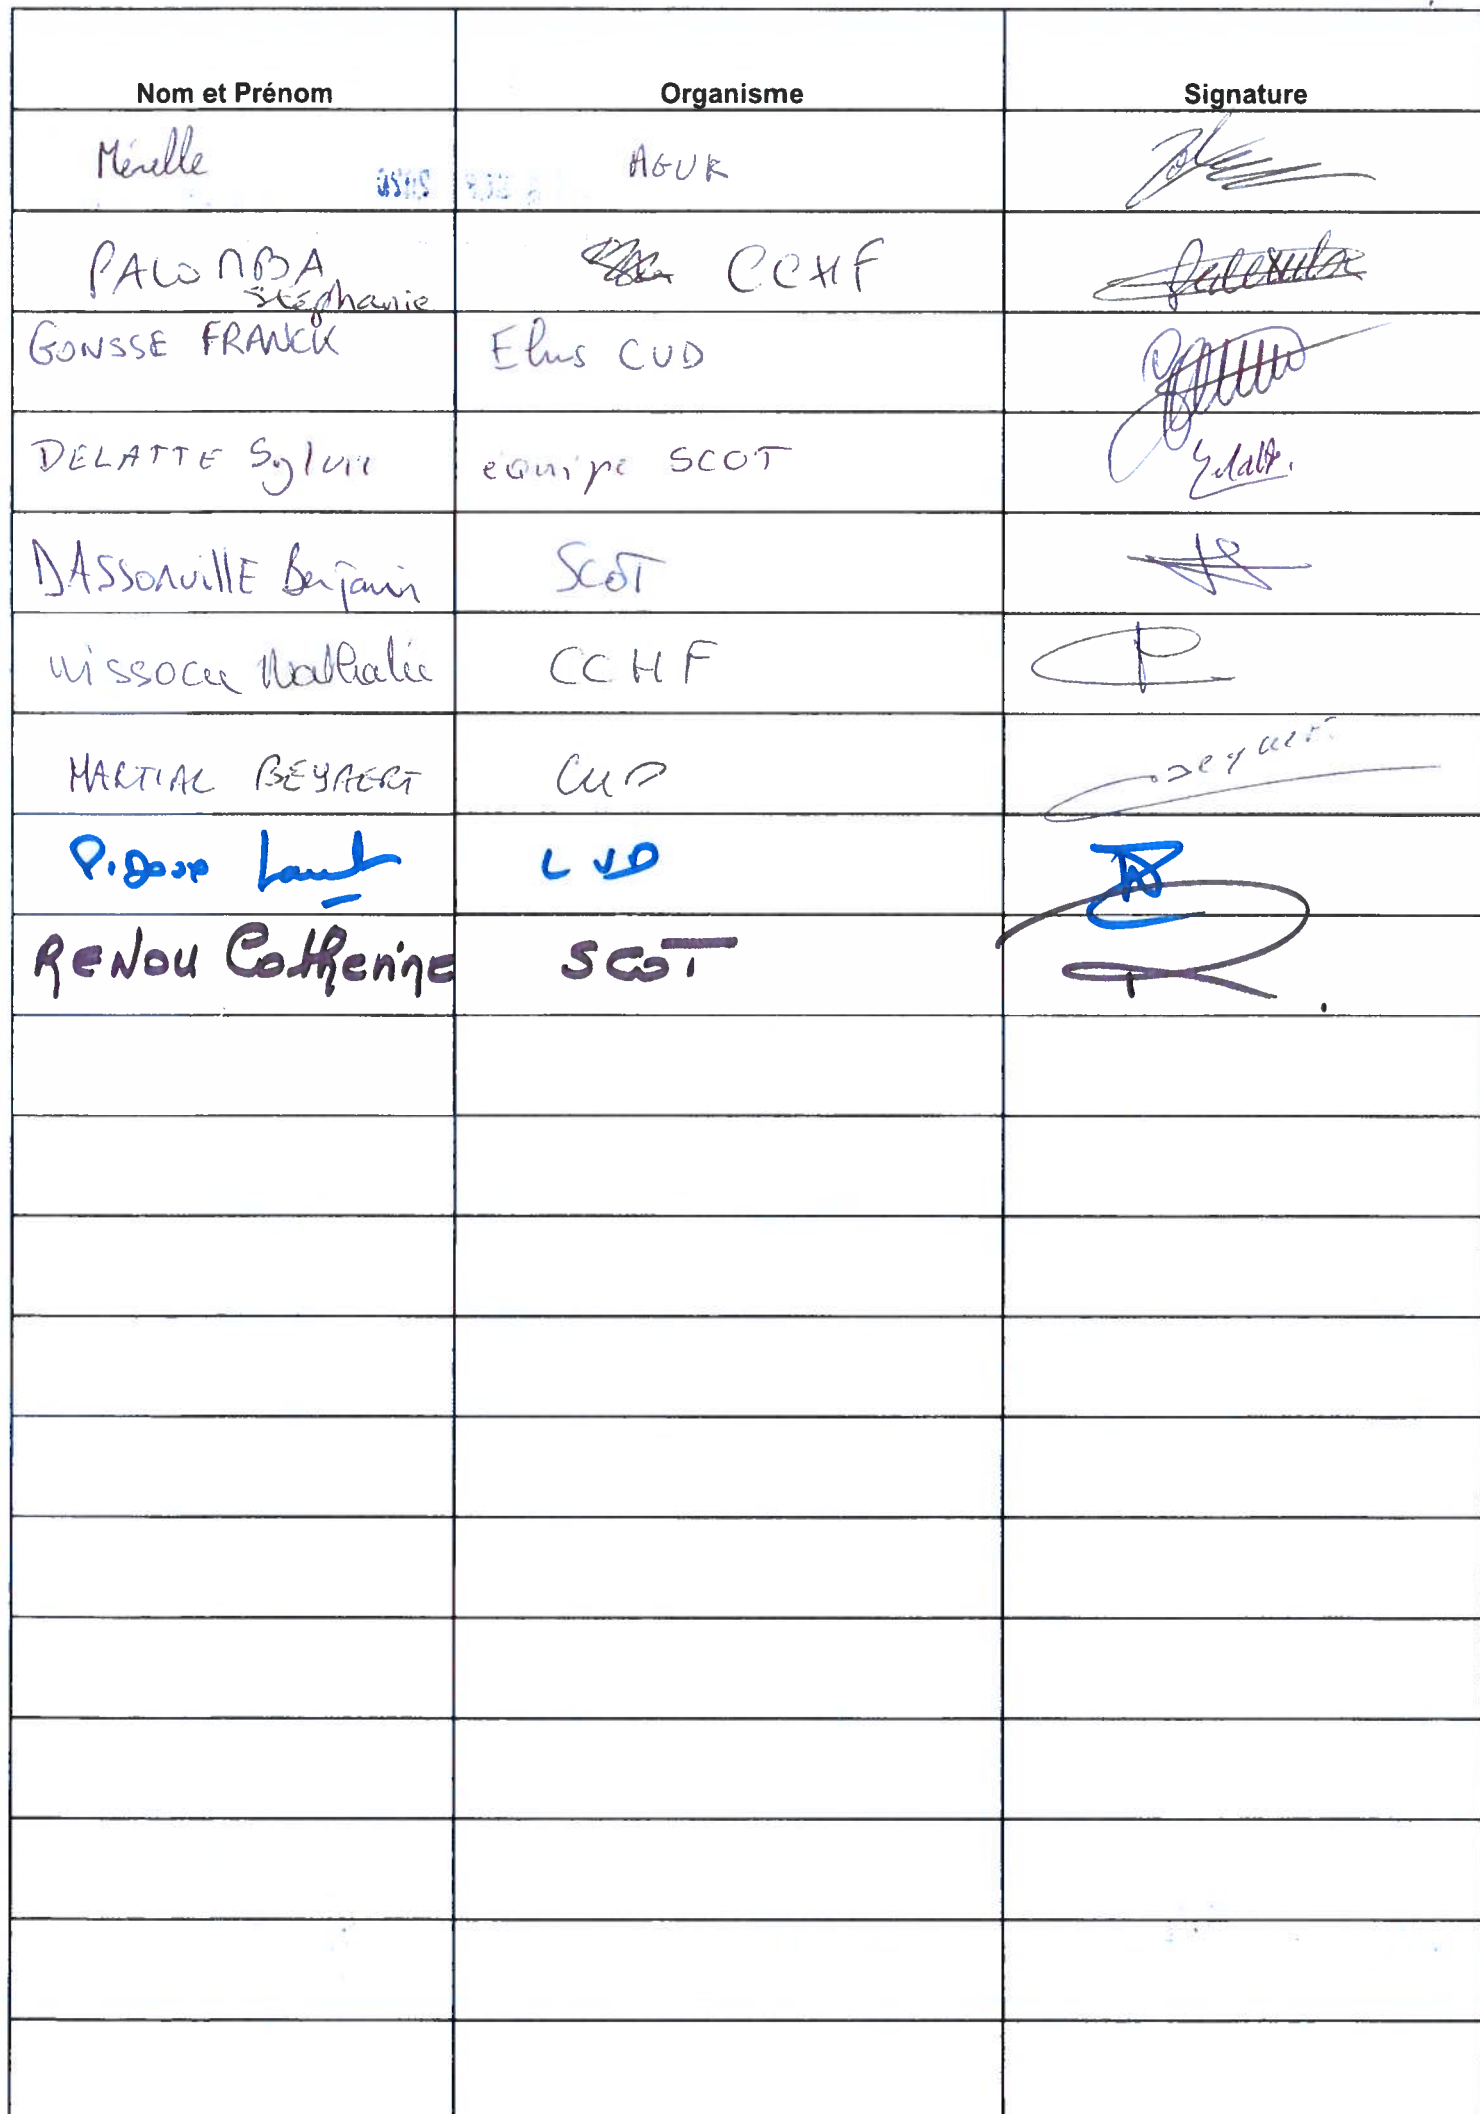 Nom et Prénom Organisme Signature
Mérelle AGUR
PALOMBA CCHF
Stéphanie
GONSSE FRANCK Elus CUD
DELATTE Sylvie équipe SCOT
DASSONVILLE Benjamin SCOT
Nathalie CCHF
MARTIAL BEYAERT CUD
RENOU Catherine SCOT